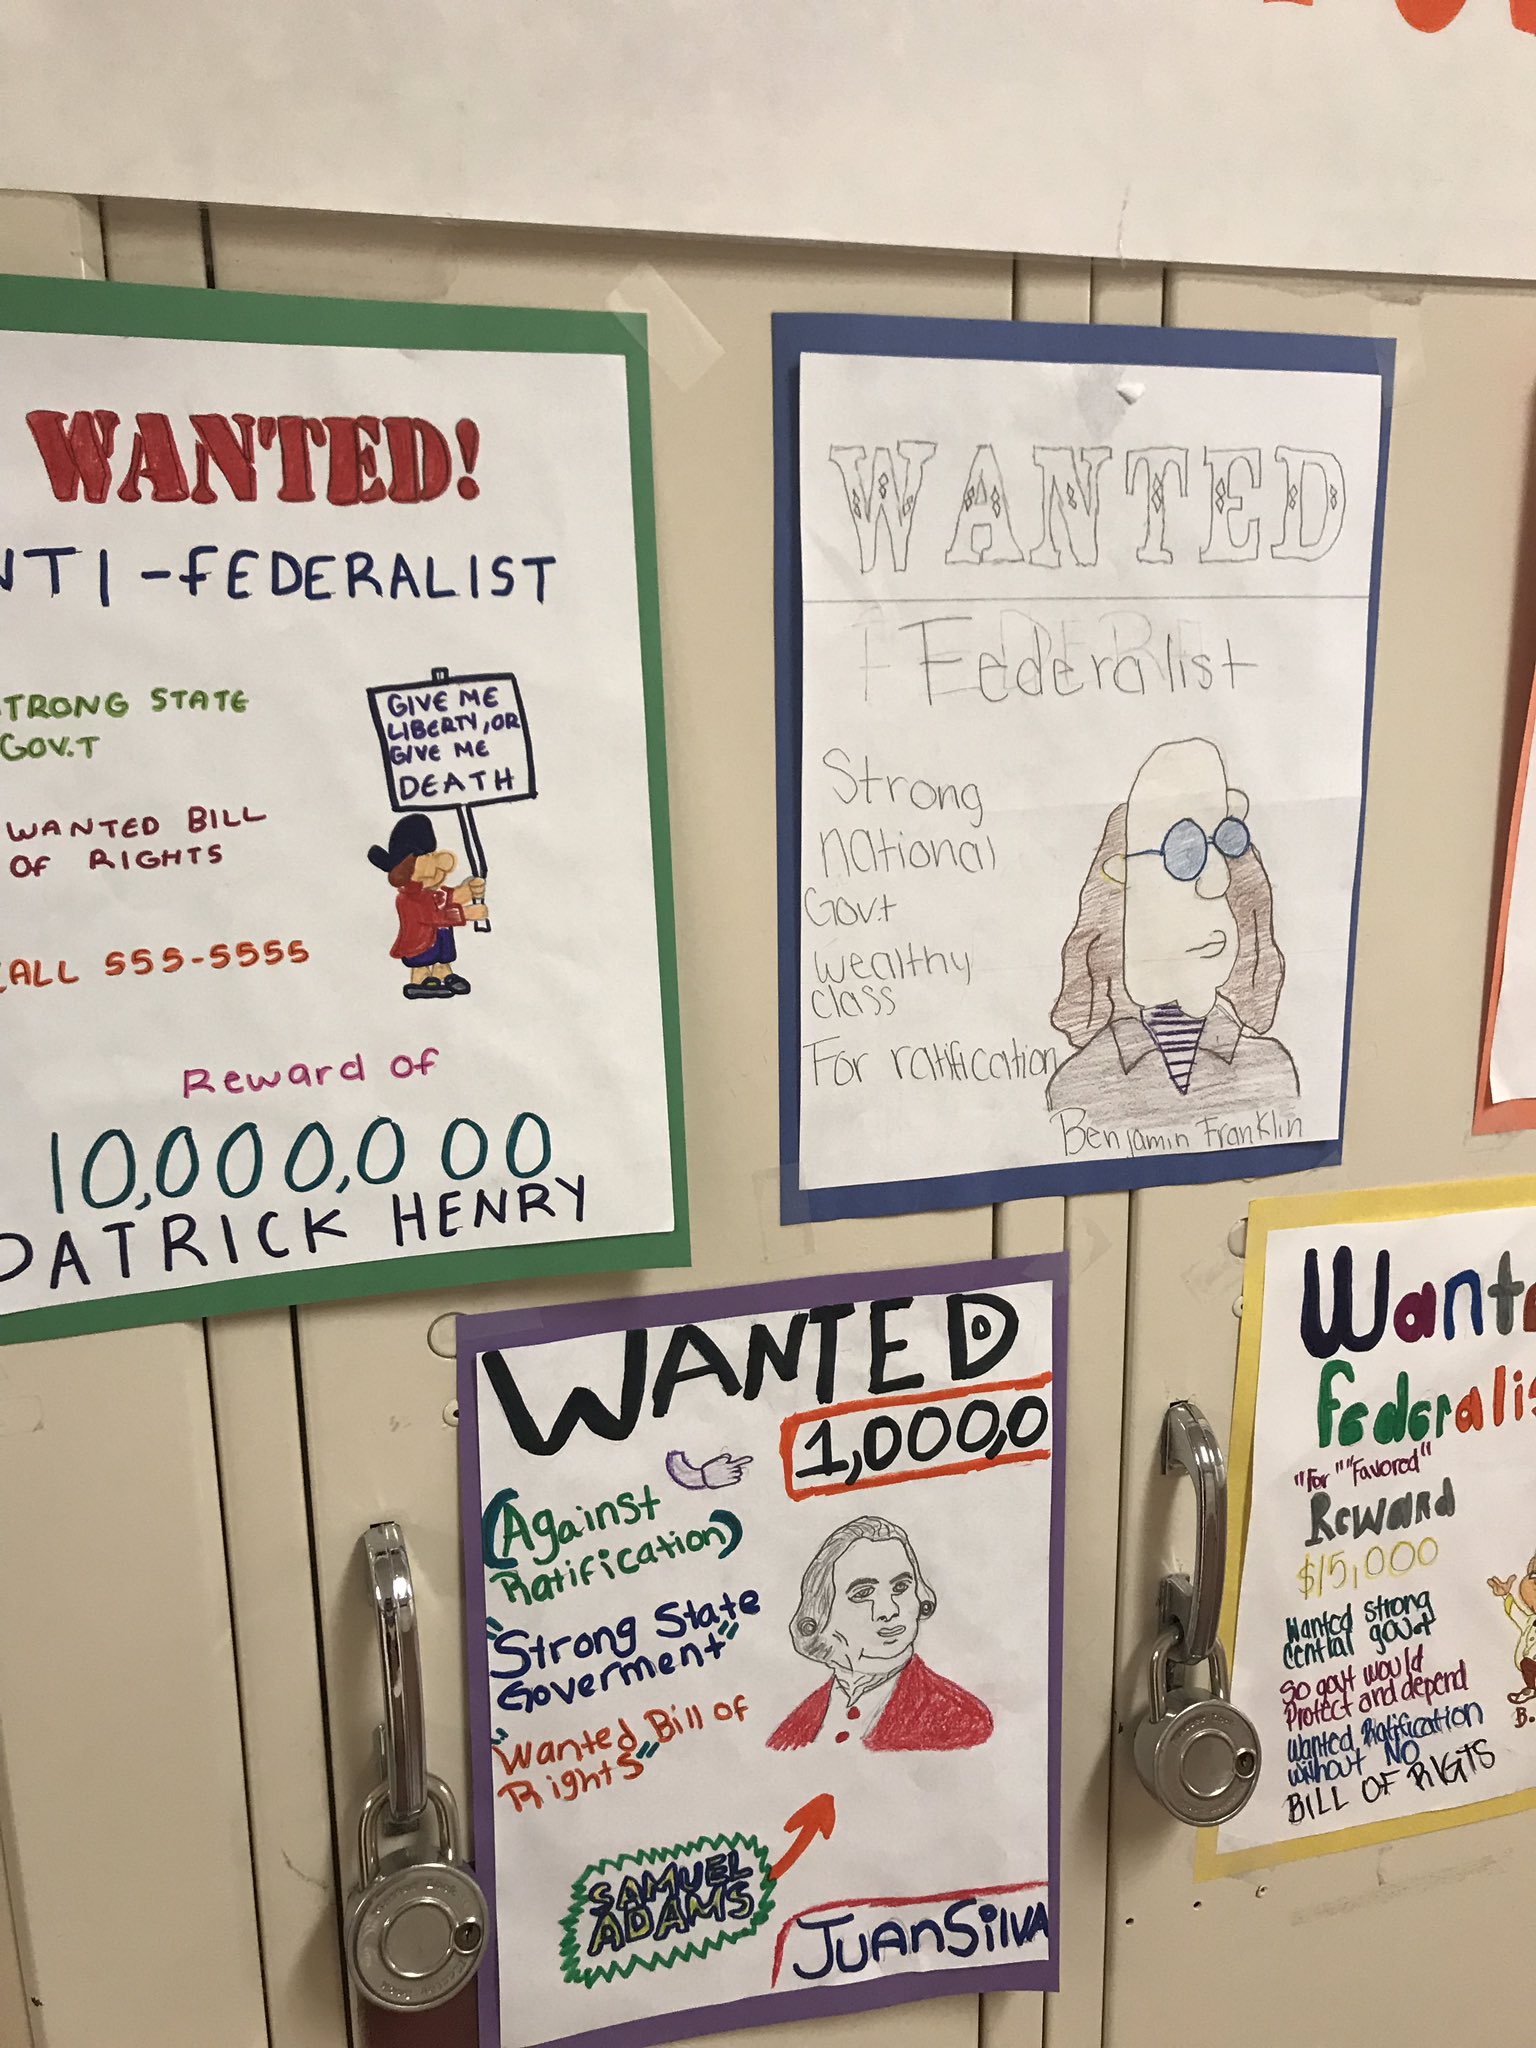 WANTED!
NTI-FEDERALIST
TRONG STATE
GOV.T
WANTED BILL
OF RIGHTS
CALL 555-5555
GIVE ME
LIBERTY, OR
GIVE ME
DEATH
Reward of
10,000,000
PATRICK HENRY
WANTED
Federalist
Strong
national
Gov.t
wealthy
class
For ratification
Benjamin Franklin
WANTED
1,000,0
(Against
Ratification)
"Strong State
Goverment"
"Wanted Bill of
Rights"
SAMUEL
ADAMS
JUAN SILVA
Wante
Federalis
"For" "Favored"
Reward
$15,000
Wanted strong
central gov't
So govt would
Protect and depend
Wanted Ratification
without NO
BILL OF RIGTS
B.